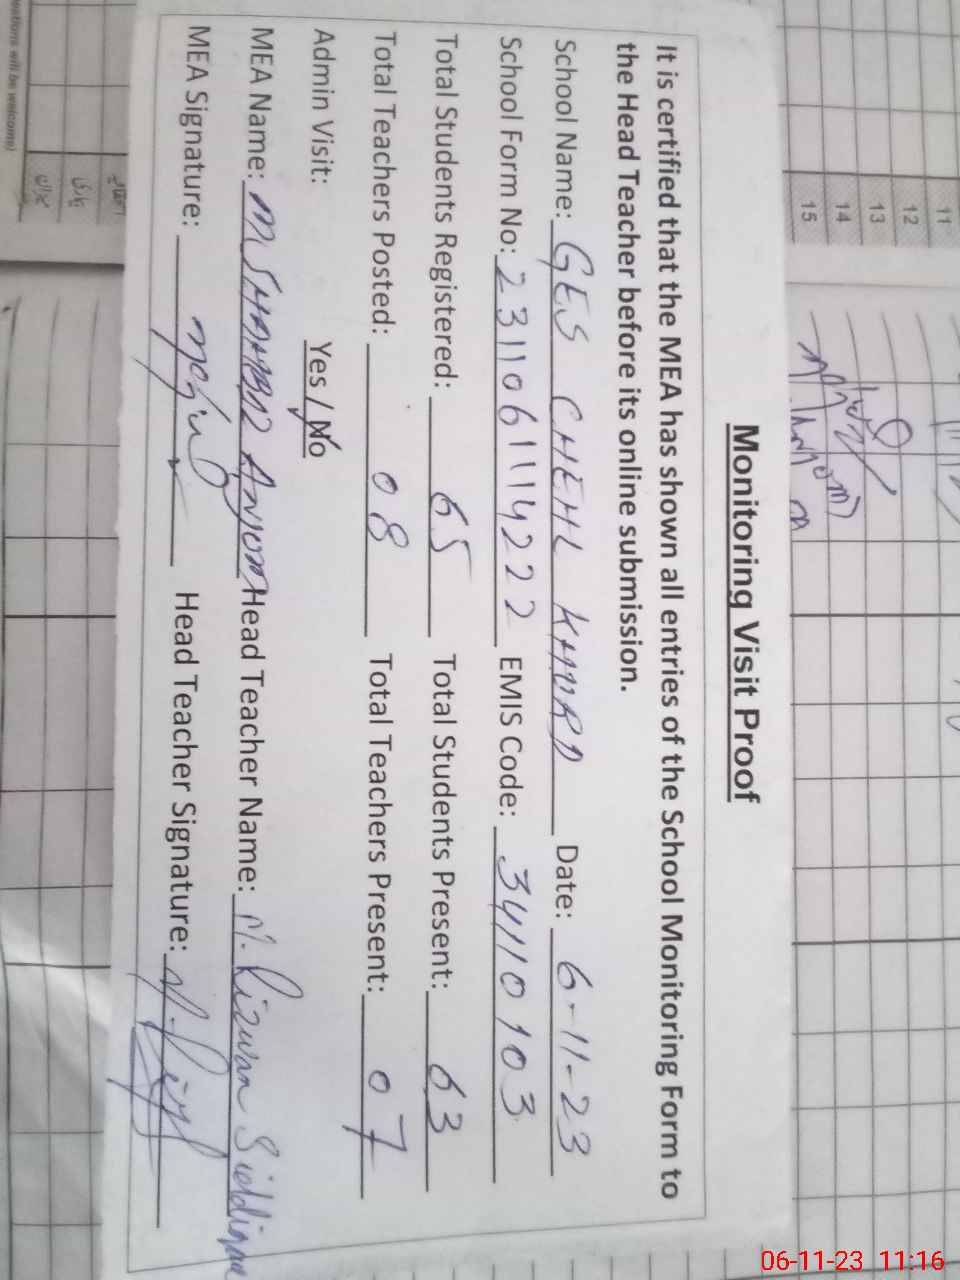 Monitoring Visit Proof
It is certified that the MEA has shown all entries of the School Monitoring Form to
the Head Teacher before its online submission.
School Name: GES CHEHL KHURD Date: 6-11-23
School Form No: 23110611114222 EMIS Code: 34110103
Total Students Registered: 65 Total Students Present: 63
Total Teachers Posted: 08 Total Teachers Present: 07
Admin Visit: Yes / No
MEA Name: M. Anjom Head Teacher Name: M. Rizwan Siddique
MEA Signature: Head Teacher Signature:
11
12
13
14
15
will be welcome)
06-11-23 11:16